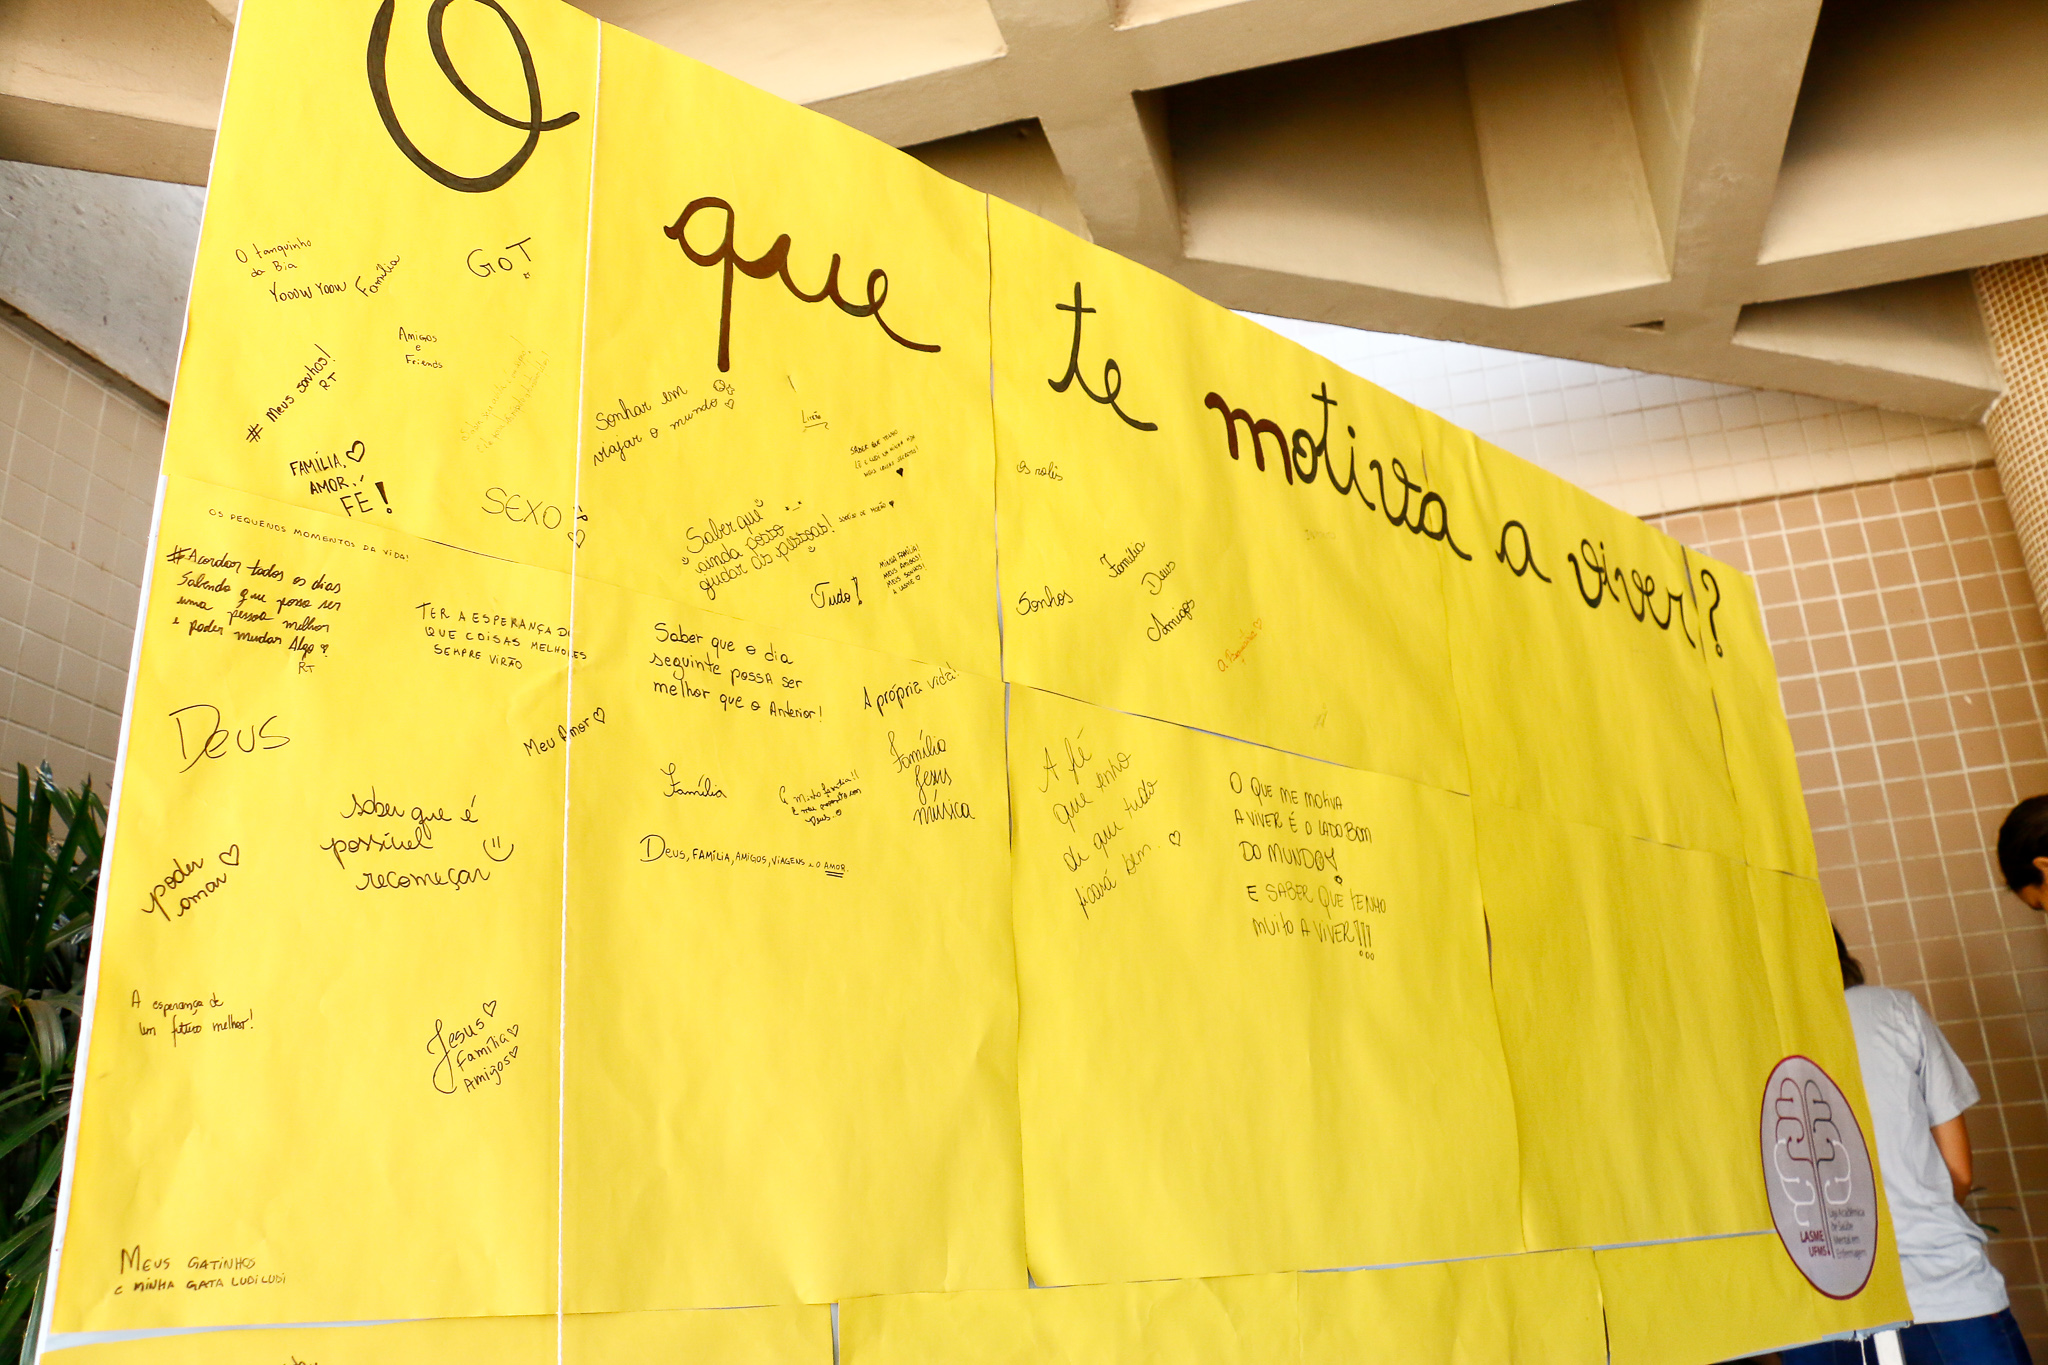 O que te motiva a viver?
O tanquinho
da Bia
YOOOW YOOW
Família
GOT
Amigos
e
Friends
# Meus sonhos!
RT
FAMÍLIA,
AMOR,
FÉ!
SEXO
Sonhar em
viajar o mundo
OS PEQUENOS MOMENTOS DA VIDA!
#Acordar todos os dias
Sabendo que posso ser
uma pessoa melhor
e poder mudar Algo
RT
TER A ESPERANÇA DE
QUE COISAS MELHORES
SEMPRE VIRÃO
Saber que
ainda posso
ajudar as pessoas!
Tudo!
MINHA FAMÍLIA!
MEUS AMIGOS!
MEUS SONHOS!
Os rolês
Sonhos
Família
Deus
Amigos
DEUS
Meu Amor
Saber que o dia
seguinte possa ser
melhor que o Anterior!
A própria vida!
Família
Família
Jesus
música
Deus, FAMÍLIA, AMIGOS, VIAGENS e O AMOR.
poder
amar
saber que é
possível
recomeçar
A fé
que tenho
de que tudo
ficará bem.
O QUE ME MOTIVA
A VIVER É O LADO BOM
DO MUNDO!
E SABER QUE TENHO
MUITO A VIVER!!!
A esperança de
um futuro melhor!
Jesus
Família
Amigos
MEUS GATINHOS
E MINHA GATA LUDILUDI
LASME
UFMS
Liga Acadêmica
de Saúde
Mental em
Enfermagem